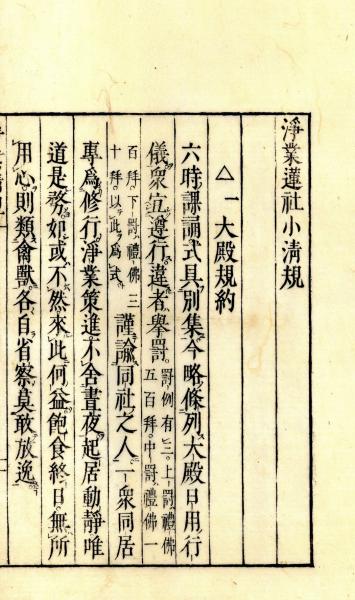 淨業蓮社小清規
△一大殿規約
六時課誦式具別集今略條列大殿日用行
儀衆宜遵行違者擧罰罰例有三上罰禮佛五百拜中罰禮佛一
百拜下罰禮佛三十拜以此爲式謹諭同社之人一衆同居
專爲修行淨業策進不舍晝夜起居動靜唯
道是務如或不然來此何益飽食終日無所
用心則類禽獸各自省察莫敢放逸